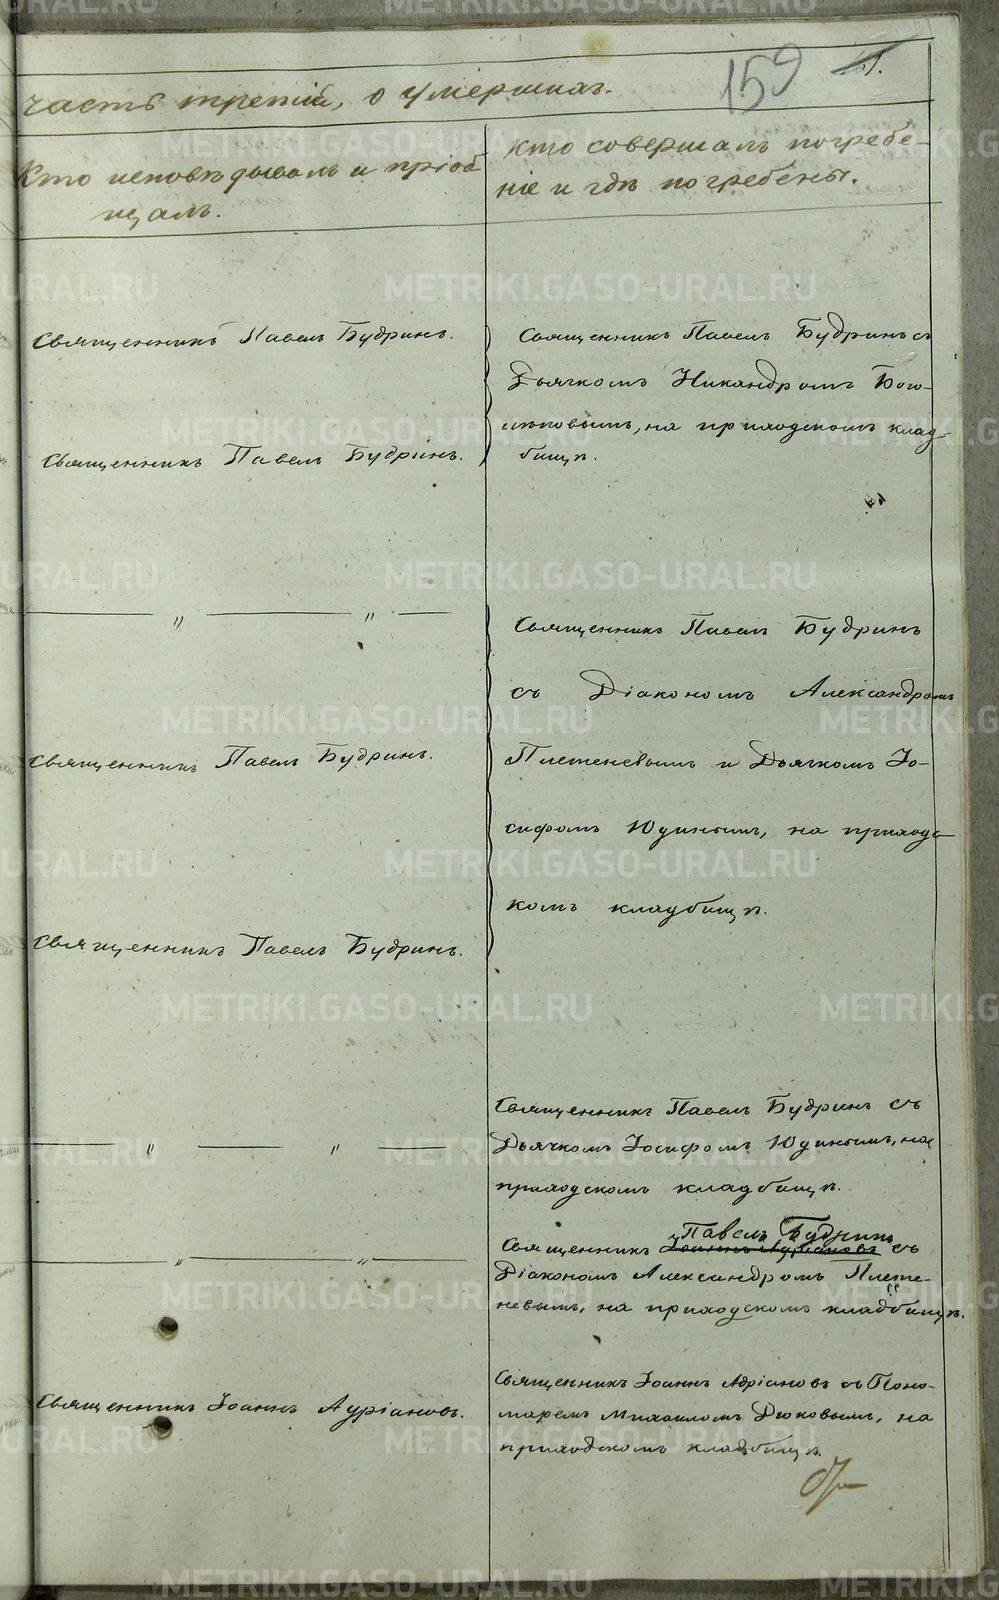 159
часть третія, о умершихъ.
Кто исповѣдывалъ и пріоб
щалъ.
кто совершалъ погребе-
ніе и гдѣ погребены.
Священникъ Павелъ Будринъ.
Священникъ Павелъ Будринъ.
— " — " —
Священникъ Павелъ Будринъ.
Священникъ Павелъ Будринъ.
— " — " —
— " — " —
Священникъ Іоаннъ Адріановъ.
Священникъ Павелъ Будринъ съ
Дьячкомъ Никандромъ Бого-
на приходскомъ клад-
бищѣ.
Священникъ Павелъ Будринъ
съ Діакономъ Александромъ
Плетеневымъ и Дьячкомъ Іо-
сифомъ Юдинымъ, на приходс-
комъ кладбищѣ.
Священникъ Павелъ Будринъ съ
Дьячкомъ Іосифомъ Юдинымъ, на
приходскомъ кладбищѣ.
Павелъ Будринъ
Священникъ Іоаннъ Адріановъ съ
Діакономъ Александромъ Плете-
невымъ, на приходскомъ кладбищѣ.
Священникъ Іоаннъ Адріановъ съ Поно-
маремъ Михаиломъ Дюковымъ, на
приходскомъ кладбищѣ.
METRIKI.GASO-URAL.RU